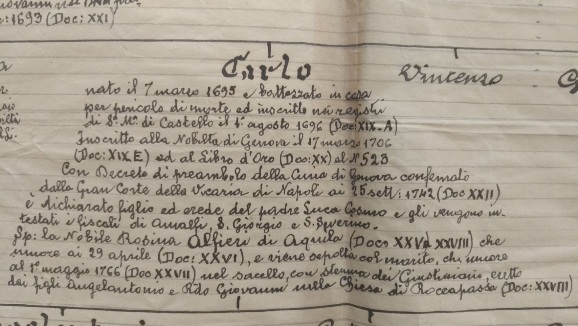 :1693 (Doc: XXI)
Carlo
Vincenzo
nato il 7 marzo 1695 e battezzato in casa
per pericolo di morte ed inscritto nei registri
di S. Mᵃ. di Castello il 1° agosto 1696 (Doc: XIX-A)
Inscritto alla Nobiltà di Genova il 17 marzo 1706
(Doc: XIX E) ed al Libro d'Oro (Doc: XX) al Nº 523
Con Decreto di preambolo della Curia di Genova confermato
dalla Gran Corte della Vicaria di Napoli ai 25 sett: 1742 (Doc XXII)
è dichiarato figlio ed erede del padre Luca Cosmo e gli vengono in-
testati i fiscali di Amalfi, S. Giorgio e S. Severino.
Sp: la Nobile Rosina Alfieri di Aquila (Docⁱ XXVI XXVIII) che
muore ai 29 aprile (Doc: XXVI), e viene sepolta col marito, che muore
al 1° maggio 1766 (Doc XXVII) nel sacello, con stemma dei Giustiniani, eretto
dai figli Angelantonio e Rdo Giovanni nella Chiesa di Roccapassa (Doc: XXVIII)